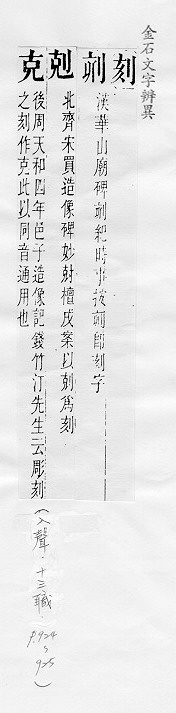 金石文字辨異
刻 𠜇 剋 克
漢華山廟碑刻紀時事按𠜇即刻字
北齊宋買造像碑妙尌檀戌案以剋為刻
後周天和四年邑子造像記錢竹汀先生云彫刻
之刻作克此以同音通用也
(入聲.十三職.
P.924
~
925)